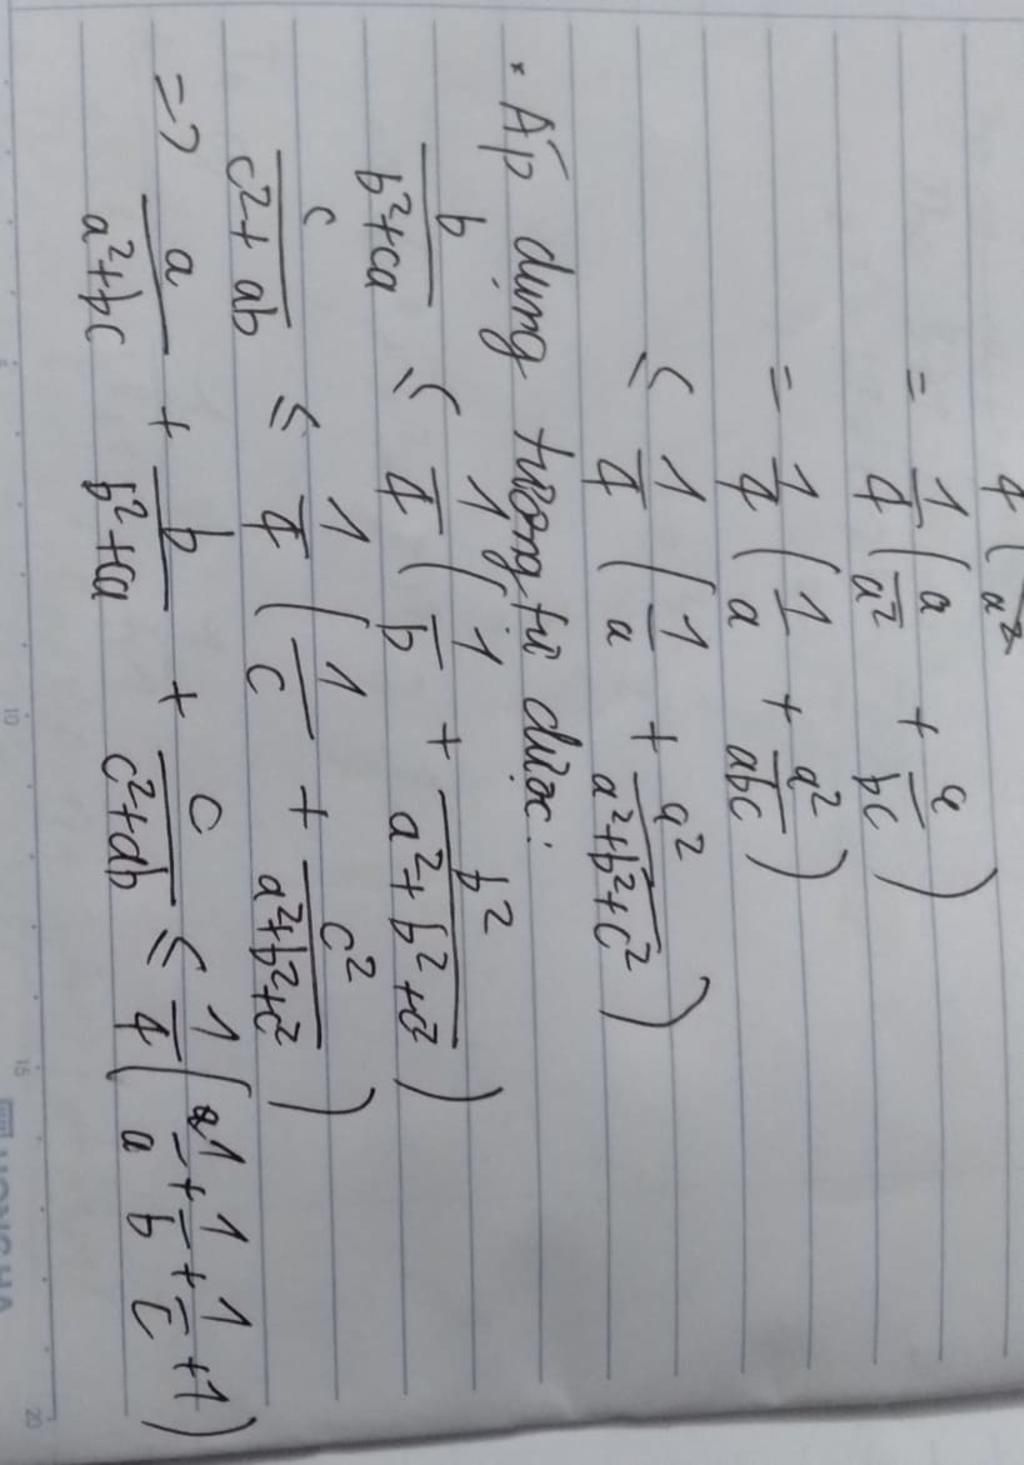 4 ( a²
= 1/4 ( a/a² + a/bc )
= 1/4 ( 1/a + a²/abc )
≤ 1/4 ( 1/a + a²/(a²+b²+c²) )
* Áp dụng tương tự được:
b/(b²+ca) ≤ 1/4 ( 1/b + b²/(a²+b²+c²) )
c/(c²+ab) ≤ 1/4 ( 1/c + c²/(a²+b²+c²) )
=> a/(a²+bc) + b/(b²+ca) + c/(c²+ab) ≤ 1/4 ( 1/a + 1/b + 1/c + 1 )
5
10
15
20